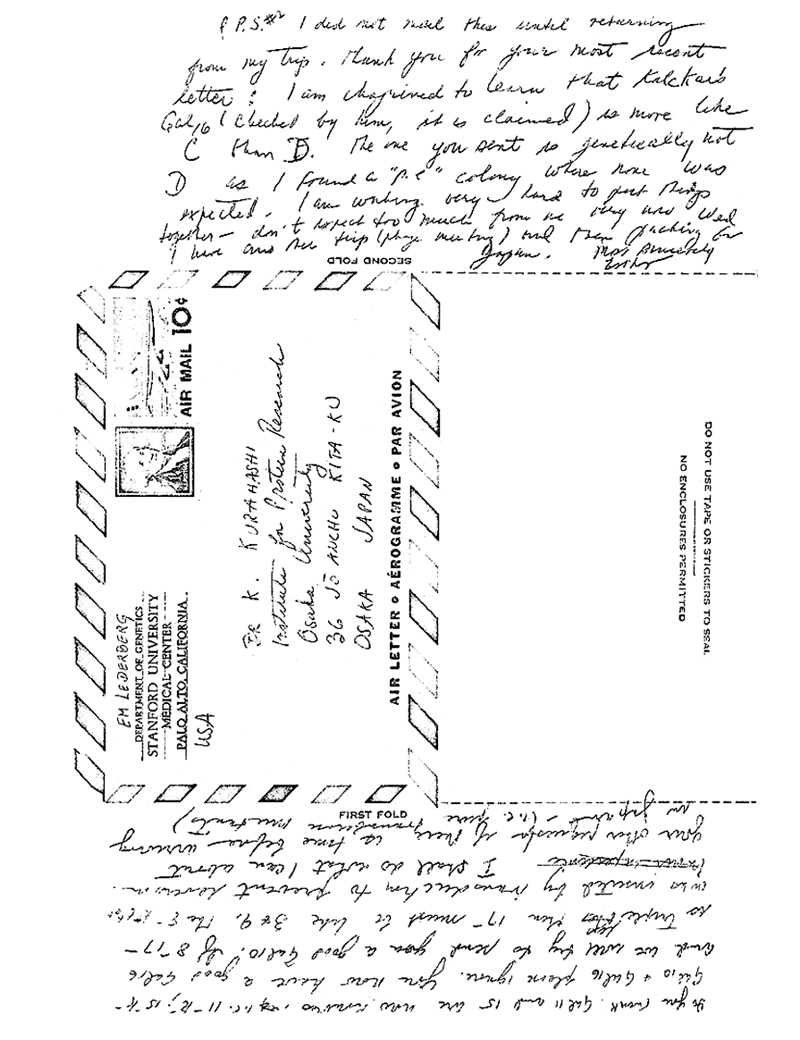 & P.S. #2 I did not mail this until returning
from my trip. Thank you for your most recent
letter: I am chagrined to learn that Kalckar's
Gal16 (checked by him, it is claimed) is more like
C than D. The one you sent is genetically not
D as I found a "p.e" colony where none was
expected. I am working very hard to put things
together — don't expect too much from me very and
I have one trip (phage meeting) and then packing for
Japan. Most sincerely
Esther
SECOND FOLD
AIR MAIL 10¢
EM LEDERBERG
DEPARTMENT OF GENETICS
STANFORD UNIVERSITY
MEDICAL CENTER
PALO ALTO, CALIFORNIA
USA
DR K. KURAHASHI
Institute for Protein Research
Osaka University
36 JŌANCHO KITA-KU
OSAKA JAPAN
AIR LETTER • AÉROGRAMME • PAR AVION
DO NOT USE TAPE OR STICKERS TO SEAL
NO ENCLOSURES PERMITTED
FIRST FOLD
Gal 11 and 15 are now known, i.e. 11 - K-; 15 - K-
Gal10 & Gal16 please ignore. You now have a good Gal16
and we will try to send you a good Gal10. If 8-17-
so then 17- must be like 3 & 9. The 8-
was inserted by transduction to prevent reversion.
I shall do what I can about
your other requests if there is time before arriving
in Japan - (i.e. more transduction mutants)